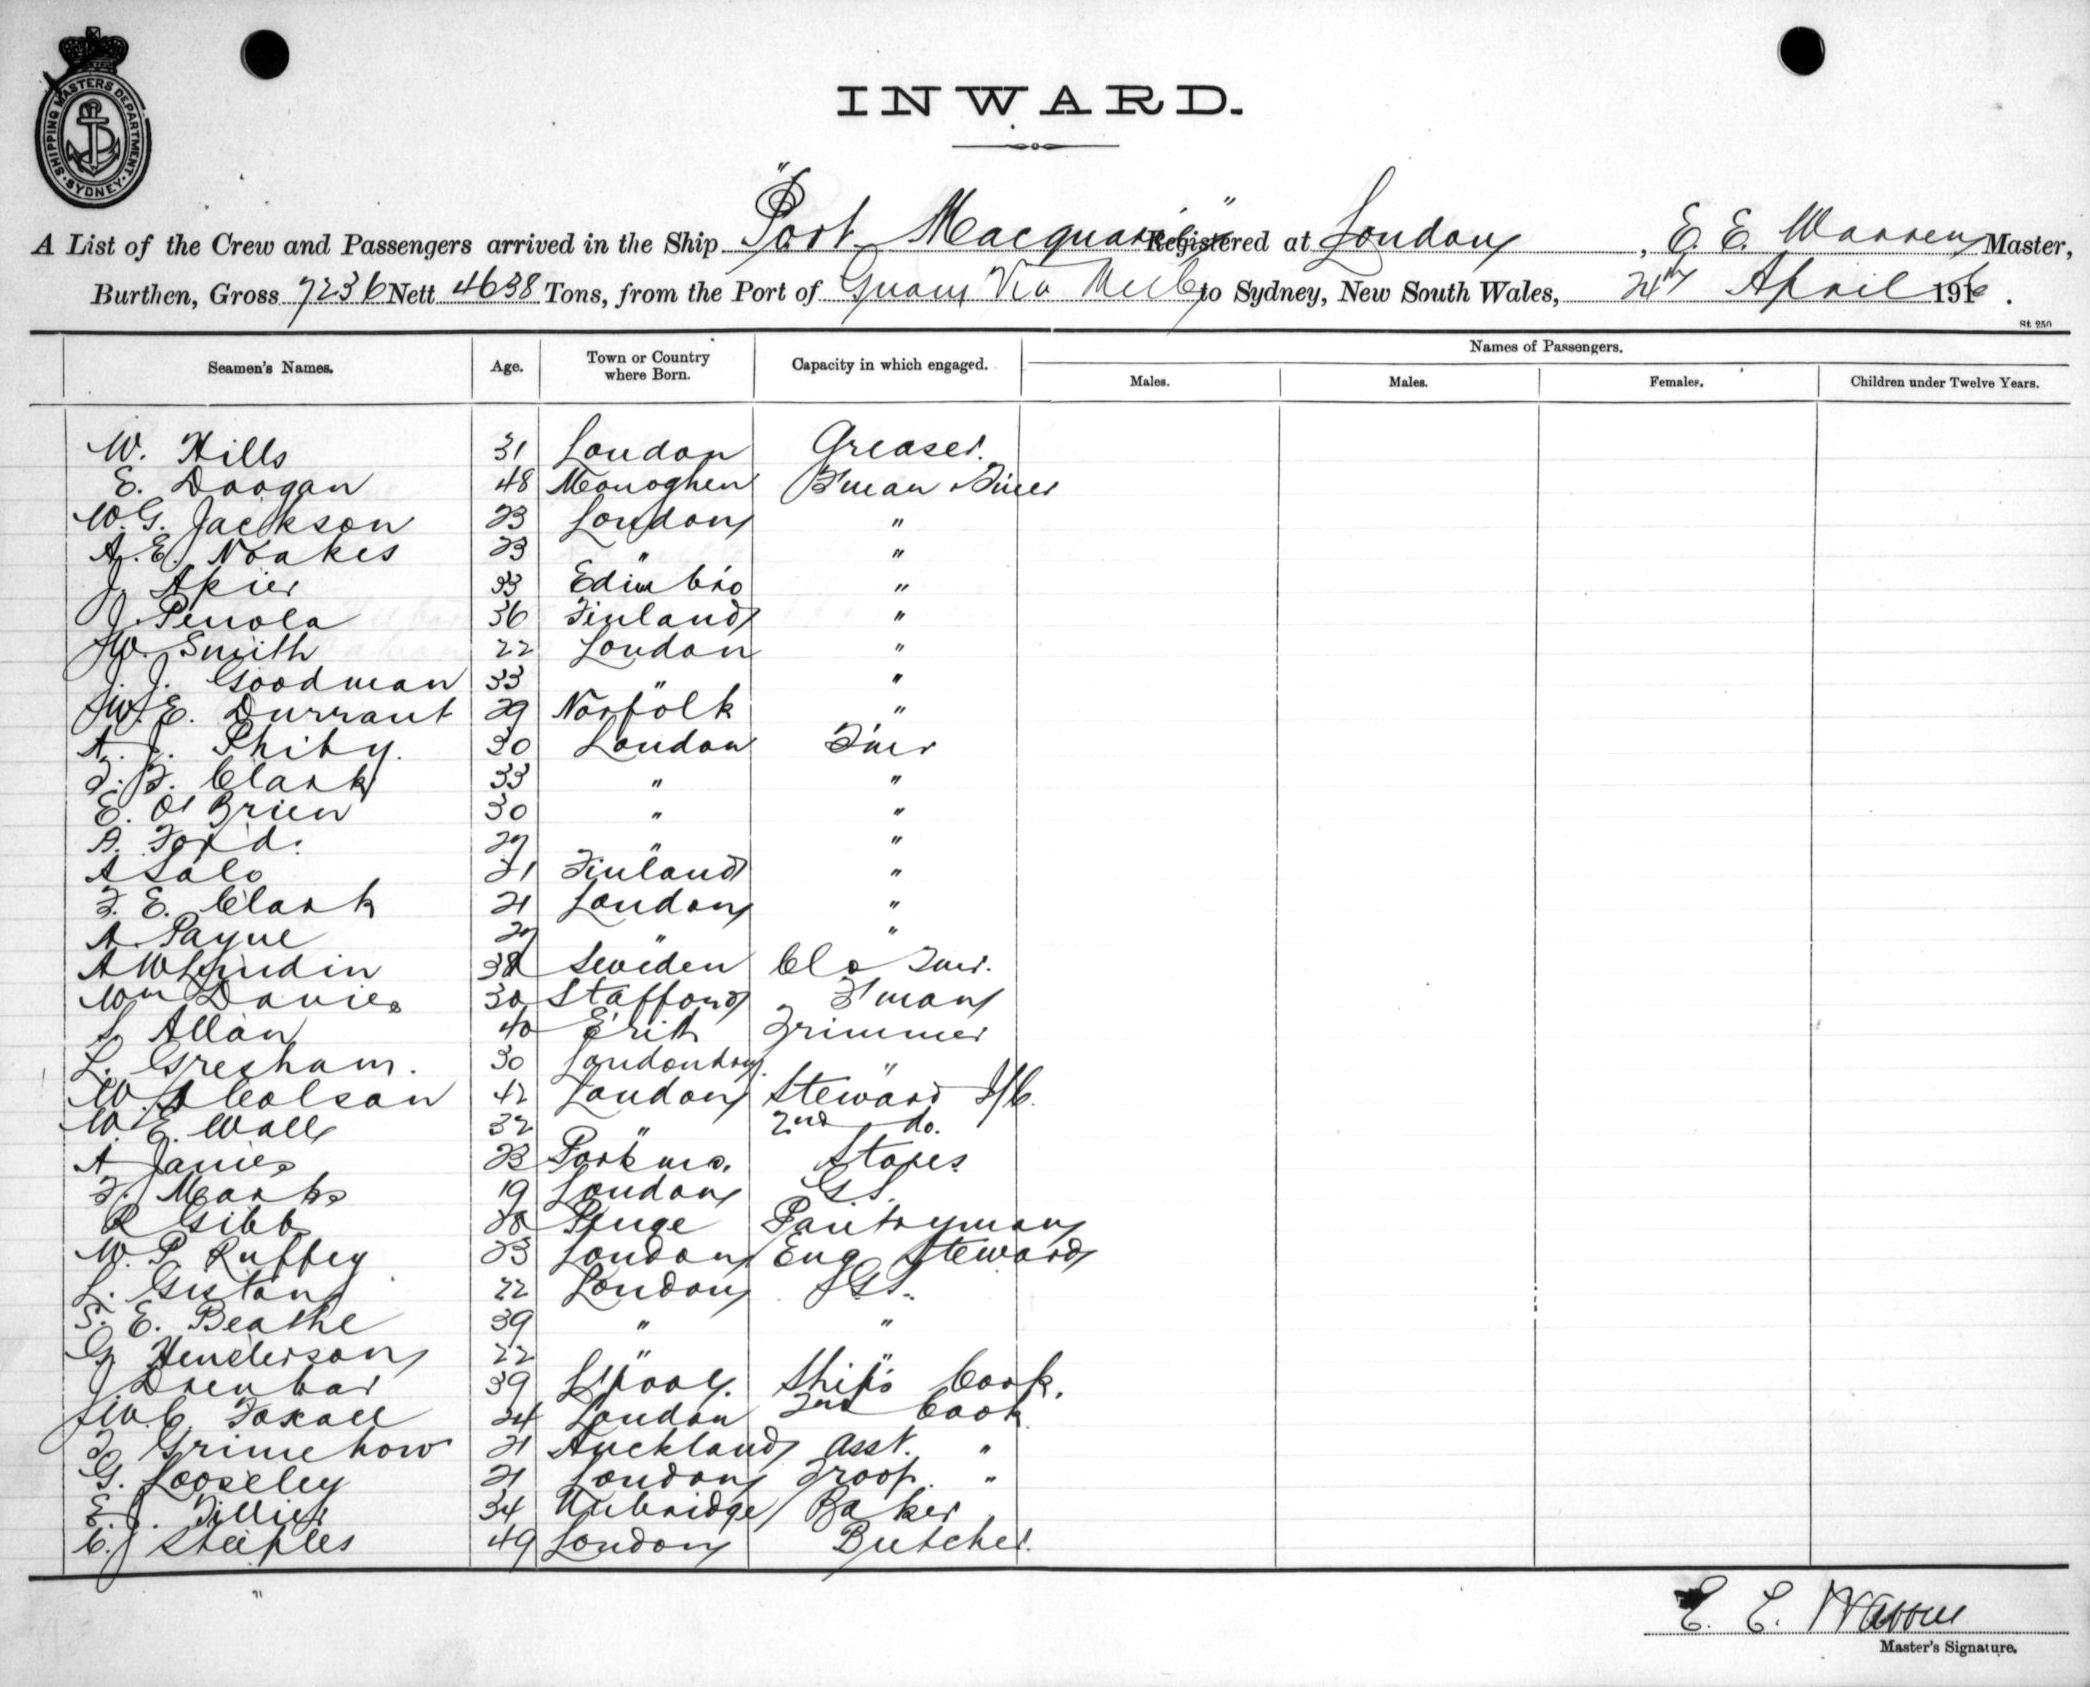 SHIPPING MASTERS DEPARTMENT SYDNEY
INWARD.
A List of the Crew and Passengers arrived in the Ship "Port Macquarie" Registered at London, E. E. Warren Master,
Burthen, Gross 7236 Nett 4638 Tons, from the Port of Via Melb to Sydney, New South Wales, April 1916.
St 250
Seamen's Names. Age. Town or Country where Born. Capacity in which engaged. Names of Passengers.
Males. Males. Females. Children under Twelve Years.
W. Hills 31 London Greaser.
E. Doogan 48 Monoghen F'man
W. G. Jackson 23 London "
A. E. Noakes 23 " "
J. 33 Edinbro "
J. Penola 36 Finland "
W. Smith 22 London "
J. J. Goodman 33 " "
W. E. Durrant 29 Norfolk "
A. J. Phiby. 30 London
F. Clark 33 " "
E. O'Brien 30 " "
A. Ford. 27 " "
A Salo 21 Finland "
F. E. Clark 21 London "
A. Payne 27 " "
A W Lundin 38 Sweden
Wm Davies 30 Stafford F'man
S. Allan 40 Erith Trimmer
L. Gresham. 30 Londondry "
W. A Colson 42 London Steward I/C.
W. E. Wall 32 " 2nd do.
A James 23 Stores
F. Marks 19 London G.S.
R Gibbs 28 Penge Pantryman
W. P. Ruffey 23 London Eng Steward
L. 22 London G.S.
S. E. Beathe 39 " "
G. Henderson 22 " "
J. 39 L'pool. Ship's Cook.
W. C. Foxall 24 London 2nd Cook
F. Grimshow 21 Auckland Asst. "
G. Looseley 21 London Troop. "
E. J. Tillier 34 Uxbridge Baker
C. J Steeples 49 London Butcher.
E. E. Warren
Master's Signature.